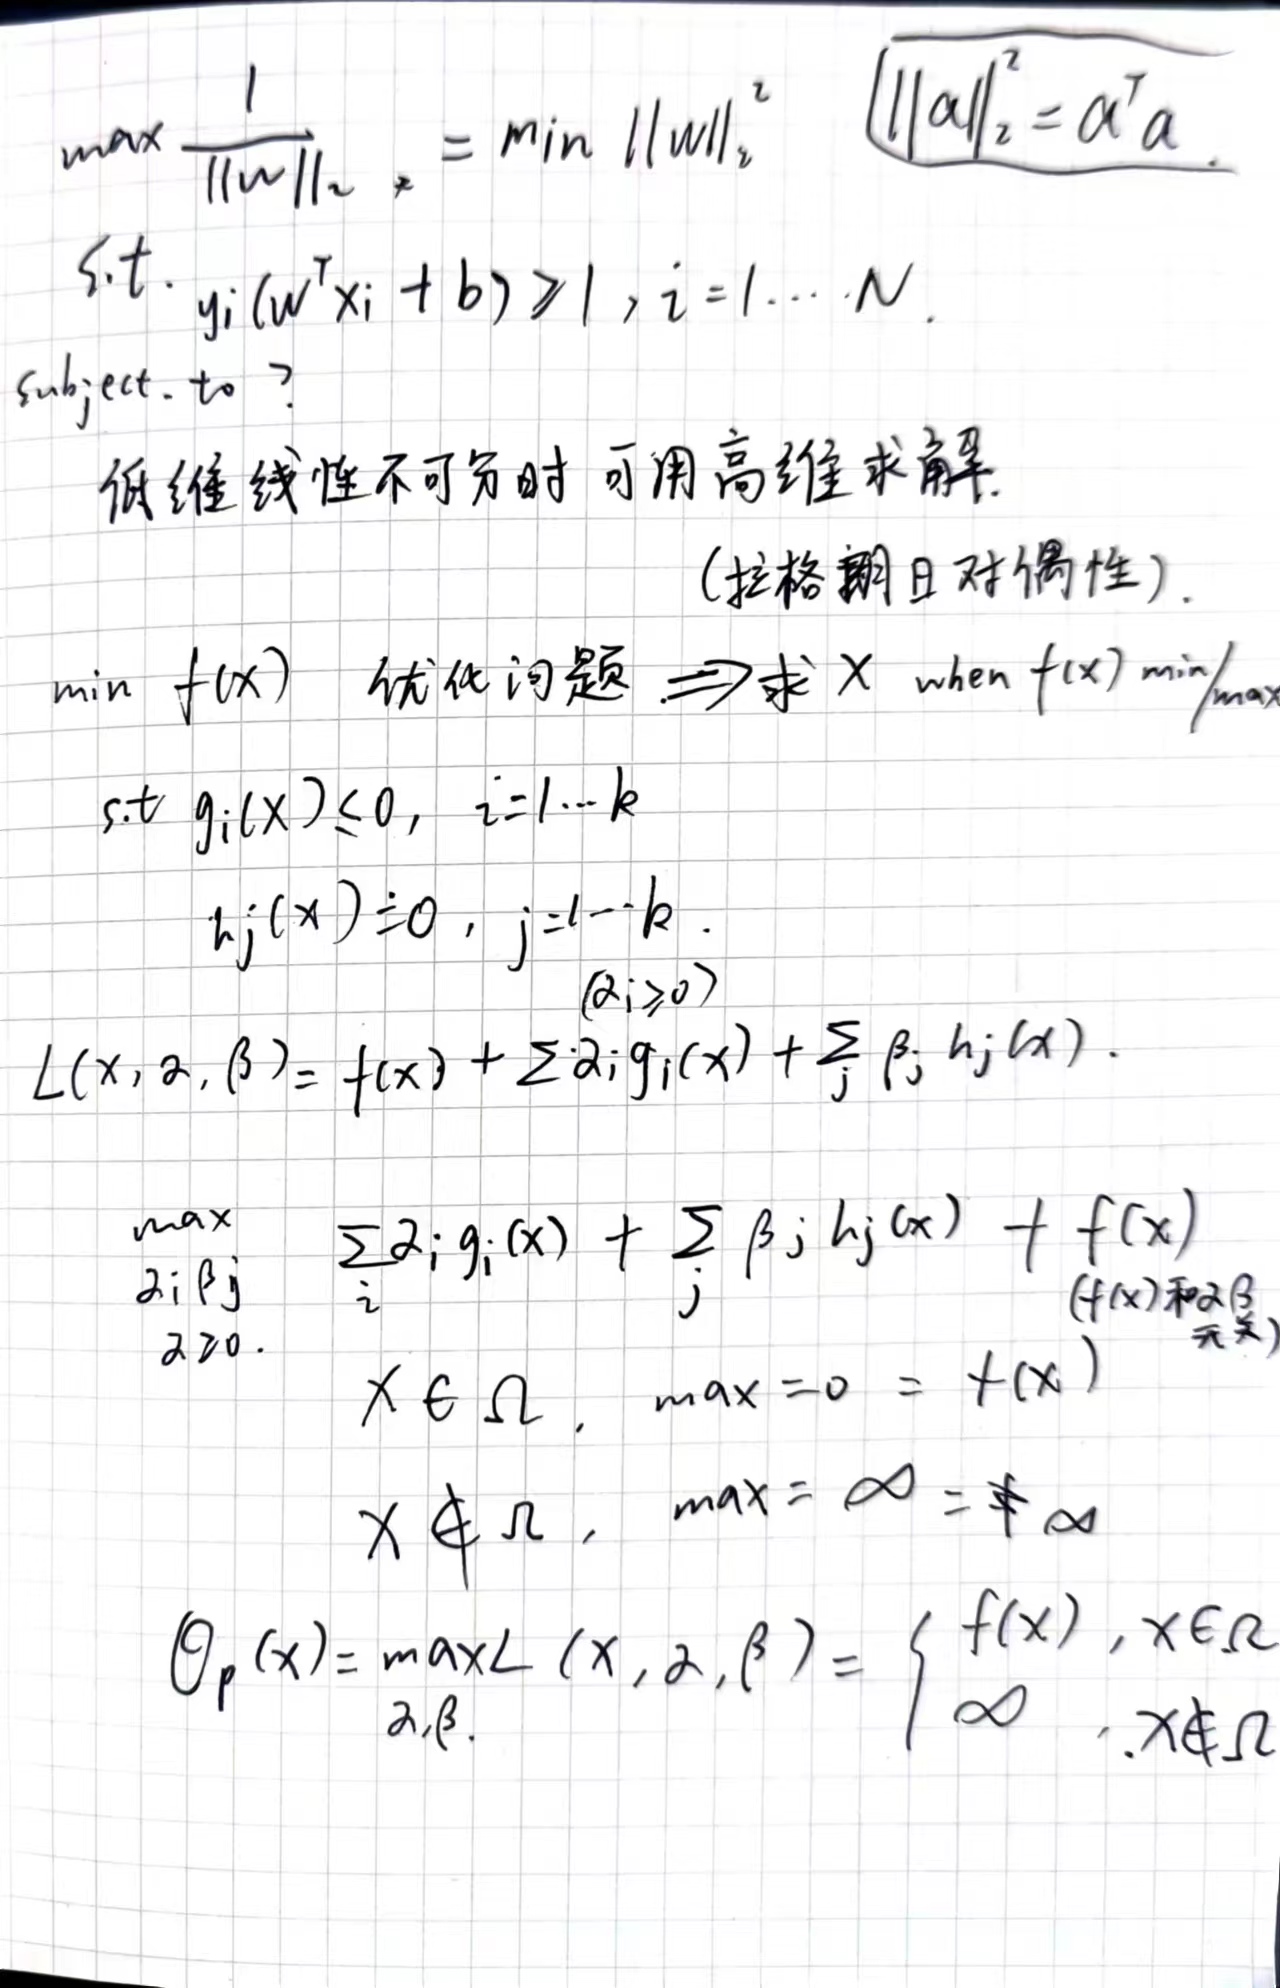 max 1/||w||₂ , = min ||w||₂² ||a||₂² = aᵀa.
s.t. yi(wᵀxi + b) ≥ 1, i=1....N.
subject. to ?
低维线性不可分时可用高维求解.
(拉格朗日对偶性).
min f(x) 优化问题 ⇒ 求 X when f(x) min/max
s.t gi(x) ≤ 0, i=1...k
hj(x) = 0, j=1...k.
(αi≥0)
L(x, α, β) = f(x) + Σ αi gi(x) + Σj βj hj(x).
max Σi αi gi(x) + Σj βj hj(x) + f(x)
αi βj (f(x)和αβ
α≥0. 无关)
X ∈ Ω, max=0 = f(x)
X ∉ Ω, max = ∞ = ∞
θp(x) = max L (x, α, β) = { f(x), x∈Ω
α,β. ∞ , x∉Ω